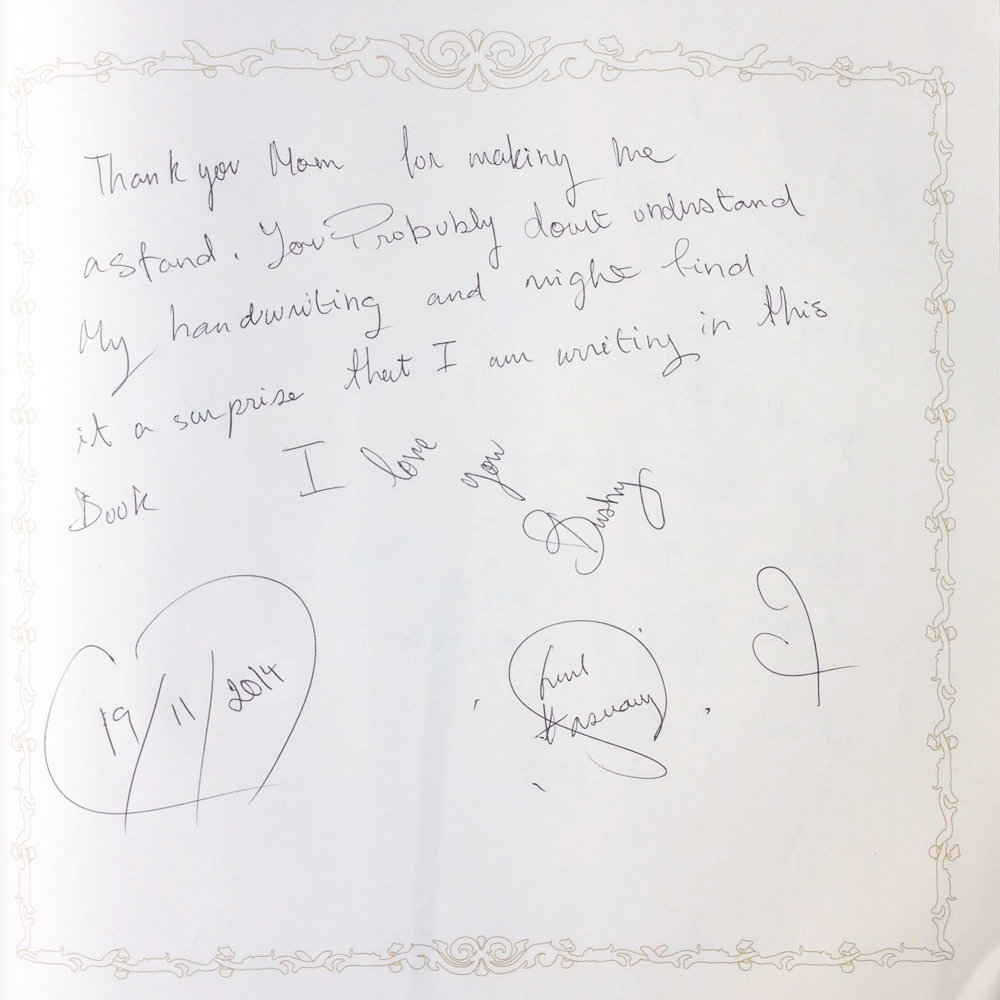 Thank you Mom for making me
astand. You Probubly dont understand
My handwriting and might find
it a surprise that I am writing in this
Book I love you
Dushy
19/11/2014